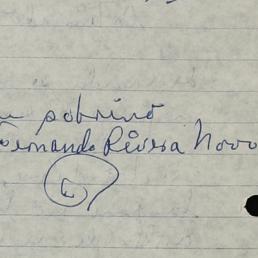 sobrino
Fernando Rivera Novo